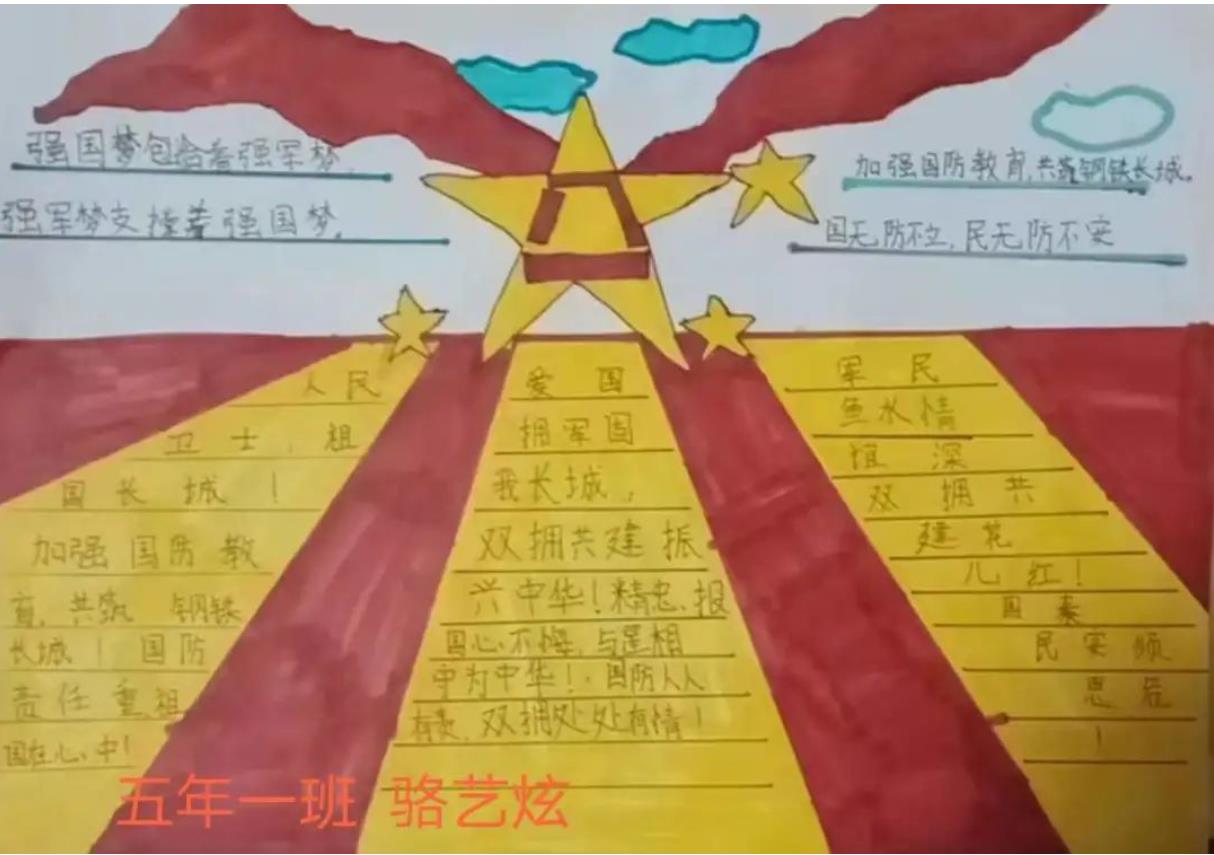 强国梦包含着强军梦,
强军梦支撑着强国梦,
加强国防教育,共筑钢铁长城。
国无防不立,民无防不安
人民
卫士,祖
国长城!
加强国防教
育,共筑钢铁
长城!国防
责任重祖
国在心中!
爱国
拥军固
我长城,
双拥共建振
兴中华!精忠报
国心不悔,与莲相
守为中华!国防人人
有责,双拥处处有情!
军民
鱼水情
谊深
双拥共
建花
儿红!
国泰
民安须
思危
!
五年一班 骆艺炫